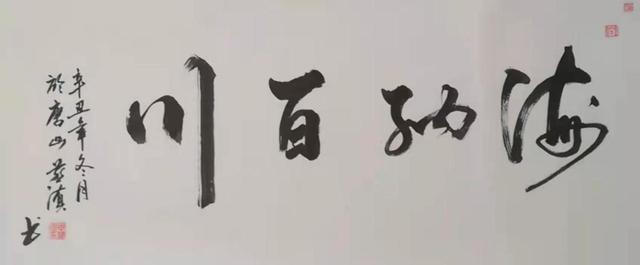 海纳百川
辛丑年冬月
於唐山
书